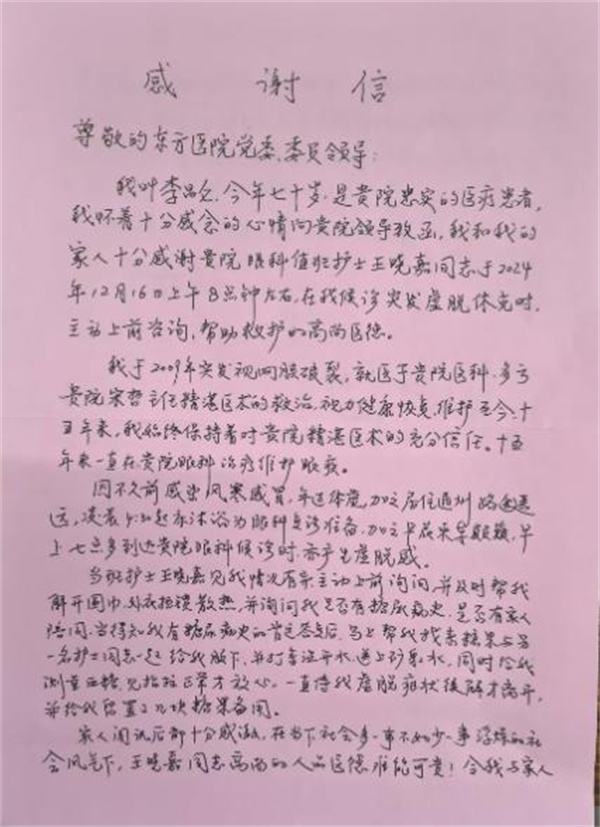 感谢信
尊敬的东方医院党委、委员领导:
我叫李品仝,今年七十岁,是贵院忠实的医疗患者,
我怀着十分感念的心情向贵院领导致函,我和我的
家人十分感谢贵院眼科值班护士王晓嘉同志于2024
年12月16日上午8点钟左右,在我候诊突发虚脱休克时,
主动上前咨询,帮助救护的高尚医德。
我于2009年突发视网膜破裂,就医于贵院医科,多亏
贵院宋哲主任精湛医术的救治,视力健康恢复,维护至今,十
五年来,我始终保持着对贵院精湛医术的充分信任。十五
年来一直在贵院眼科治疗维护眼疾。
因不久前感染风寒感冒,年迈体虚,加之居住通州路途遥
远,凌晨4:30起床沐浴为眼科复诊准备,加之早夜来晕颠颠,早
上七点多到达贵院眼科候诊时,亦产生虚脱感。
当班护士王晓嘉见我情况有异主动上前询问,并及时帮我
解开围巾、外衣拉锁散热,并询问我是否有糖尿病史,是否有家人
陪同,当得知我有糖尿病史的肯定答复后,马上帮我找来糖果与另
一名护士同志一起给我服下,并打来温开水,送上矿泉水,同时给我
测量血糖,见指标正常才放心。一直待我虚脱症状缓解才离开,
并给我留置了几块糖果备用。
家人闻讯后都十分感激,在当下社会多一事不如少一事浮燥的社
会风气下,王晓嘉同志高尚的人品医德难能可贵!令我与家人